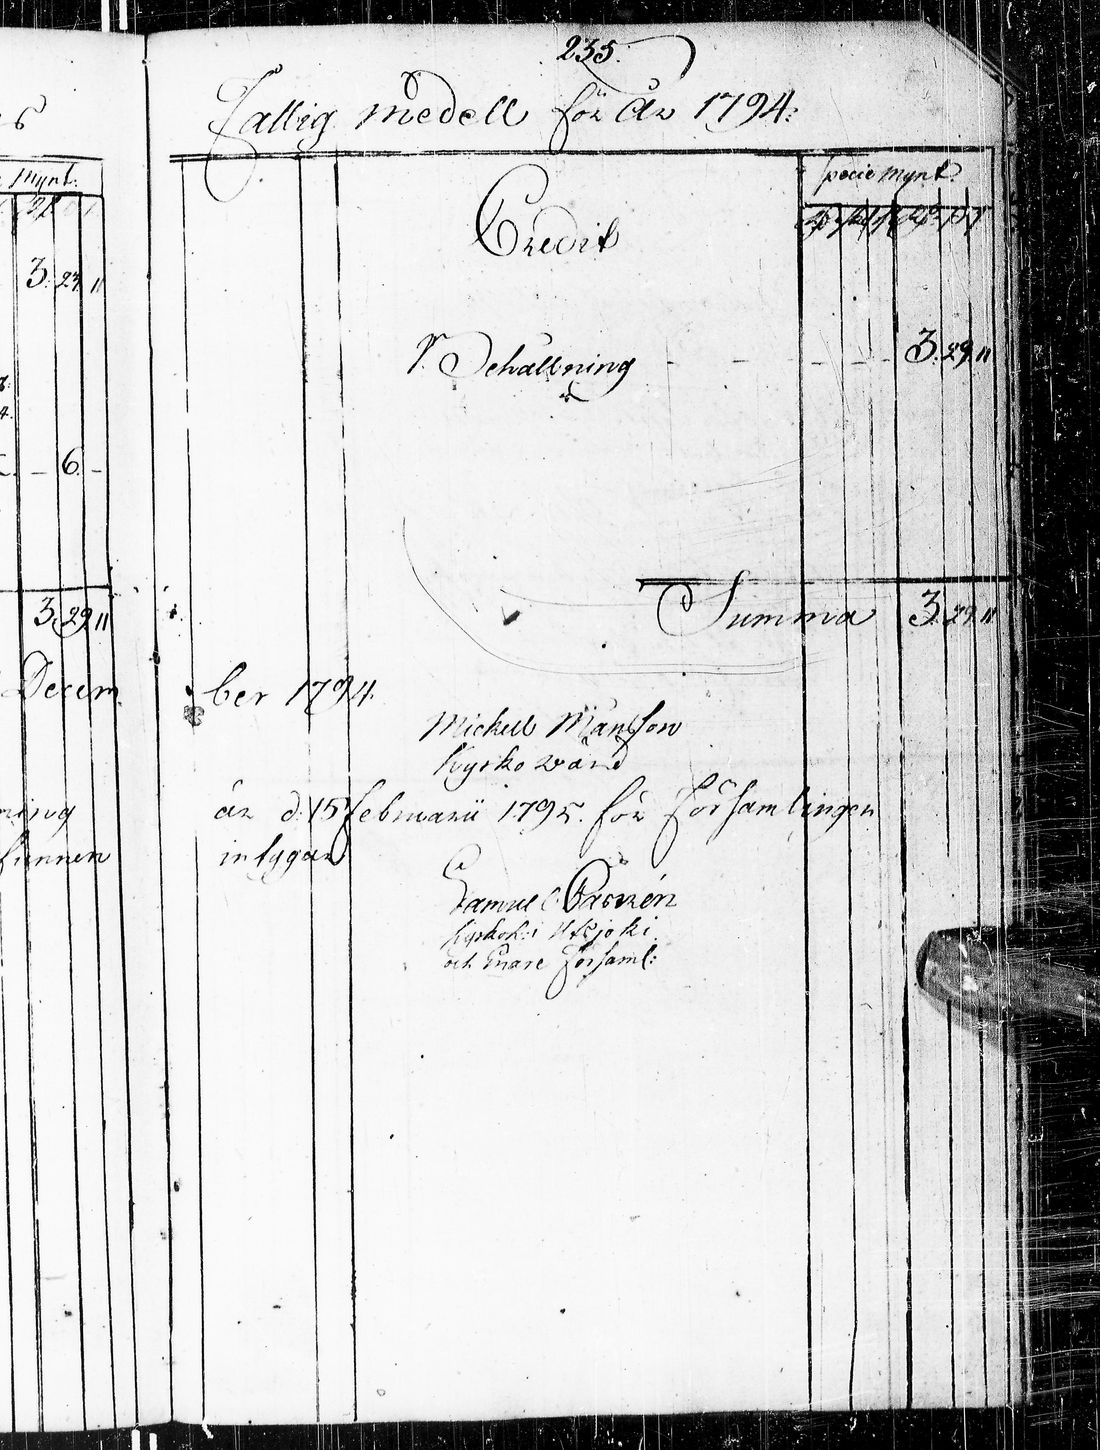 235.
Fattig medell för år 1794:
Specie Mynt.
Credit
Behållning - - - - - 3. 29. 11
Summa 3. 29. 11
ber 1794.
Mickell Månsson
kyrko wärd
är d. 15 februarii 1795. för församlingen
intygar
Samuel
kyrkoh: i Utsjoki
och Enare Församl:
Mynt.
3. 11
6. -
3. 29. 11
Decem
funnen